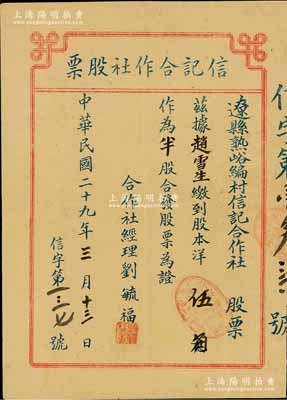 上海陽明拍賣
信記合作社股票
遼縣熟峪編村信記合作社 股票
茲據趙雪生繳到股本洋 伍角
作為半股合發股票為證
合作社經理劉毓福
中華民國二十九年三月十三日
信字第 號
信字第 號
上海陽明拍賣
上海陽明拍賣